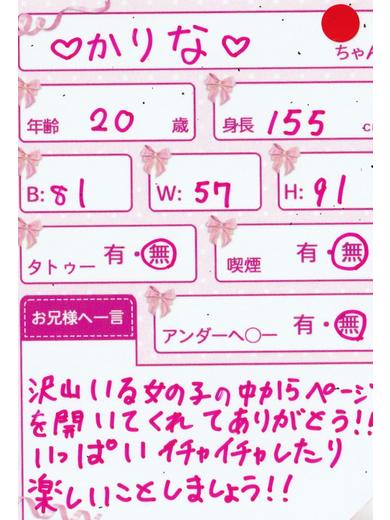 ♡かりな♡ ちゃん
年齢 20 歳 身長 155 c
B: 81 W: 57 H: 91
タトゥー 有・無 喫煙 有・無
お兄様へ一言 アンダーヘ〇ー 有・無
沢山いる女の子の中からページ
を開いてくれてありがとう!!
いっぱいイチャイチャしたり
楽しいことしましょう!!